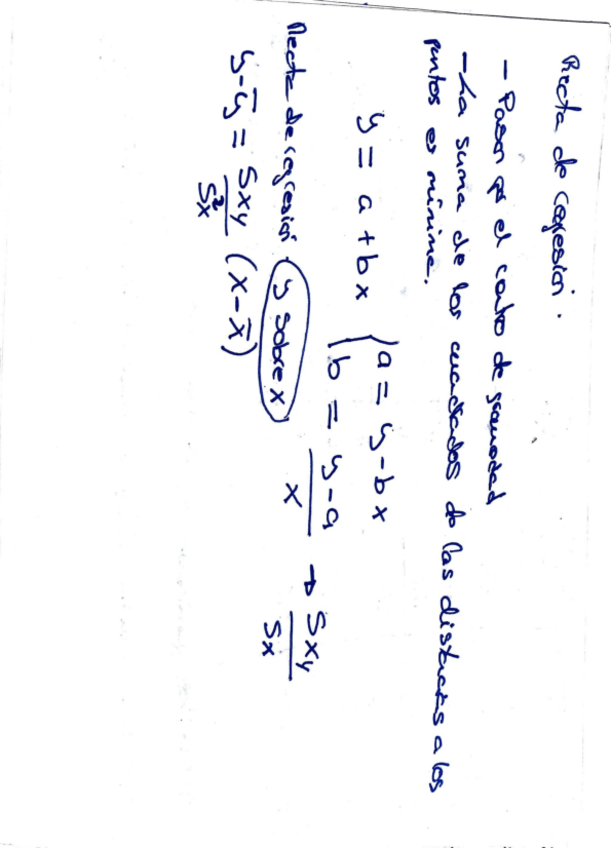 Recta de regresión.
- Pasar por el centro de gravedad
- La suma de los cuadrados de las distancias a los
puntos es mínima.
y = a + bx { a = y - bx
b = y - a / x → Sxy / Sx
Recta de regresión y sobre x
y - ȳ = Sxy / S²x (x - x̄)